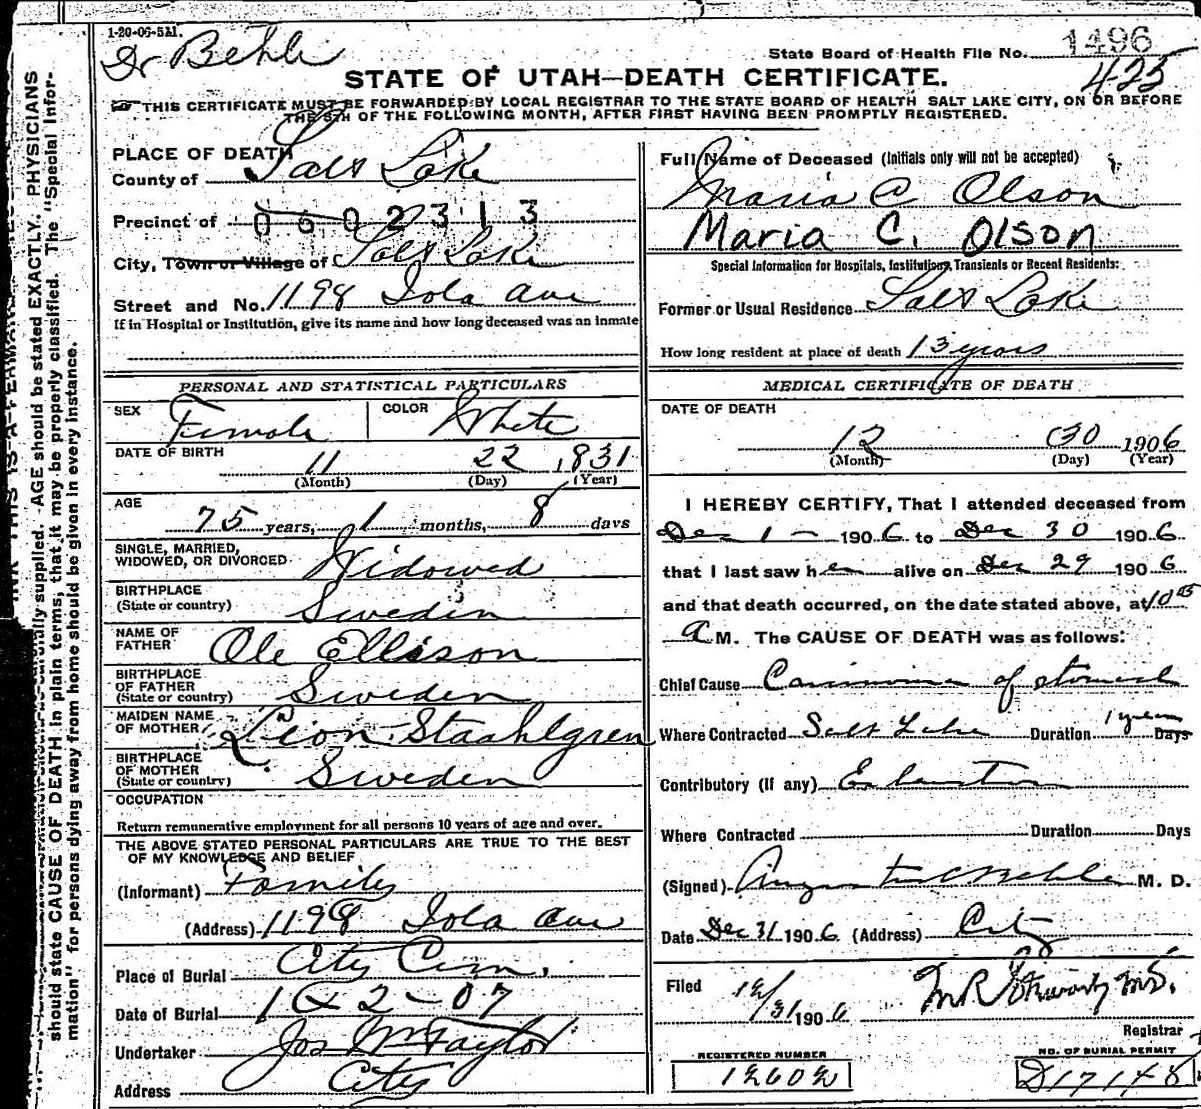 1-20-06-5M.
Dr Behle
State Board of Health File No. 1496
425
STATE OF UTAH—DEATH CERTIFICATE.
THIS CERTIFICATE MUST BE FORWARDED BY LOCAL REGISTRAR TO THE STATE BOARD OF HEALTH SALT LAKE CITY, ON OR BEFORE
THE 5TH OF THE FOLLOWING MONTH, AFTER FIRST HAVING BEEN PROMPTLY REGISTERED.
PLACE OF DEATH
County of Salt Lake
Precinct of 0602313
City, Town or Village of Salt Lake
Street and No. 1198 Iola Ave
If in Hospital or Institution, give its name and how long deceased was an inmate
Full Name of Deceased (Initials only will not be accepted)
Maria C Olson
Maria C. Olson
Special Information for Hospitals, Institutions, Transients or Recent Residents:
Former or Usual Residence Salt Lake
How long resident at place of death 13 years
PERSONAL AND STATISTICAL PARTICULARS
SEX Female COLOR White
DATE OF BIRTH
11 22 1831
(Month) (Day) (Year)
AGE
75 years, 1 months, 8 days
SINGLE, MARRIED,
WIDOWED, OR DIVORCED Widowed
BIRTHPLACE
(State or country) Sweden
NAME OF
FATHER Ole Ellison
BIRTHPLACE
OF FATHER
(State or country) Sweden
MAIDEN NAME
OF MOTHER Leion Staahlgren
BIRTHPLACE
OF MOTHER
(State or country) Sweden
OCCUPATION
Return remunerative employment for all persons 10 years of age and over.
THE ABOVE STATED PERSONAL PARTICULARS ARE TRUE TO THE BEST
OF MY KNOWLEDGE AND BELIEF
(Informant) Family
(Address) 1198 Iola Ave
Place of Burial City Cem.
Date of Burial 1 2-07
Undertaker Jos Wm Taylor
Address City
MEDICAL CERTIFICATE OF DEATH
DATE OF DEATH
12 30 1906
(Month) (Day) (Year)
I HEREBY CERTIFY, That I attended deceased from
Dec 1 - 1906 to Dec 30 1906
that I last saw her alive on Dec 29 1906
and that death occurred, on the date stated above, at 10
a M. The CAUSE OF DEATH was as follows:
Chief Cause Carcinoma of stomach
Where Contracted Salt Lake Duration 1 year Days
Contributory (if any) Exhaustion
Where Contracted Duration Days
(Signed) Augustus C Behle M. D.
Date Dec 31 1906 (Address) City
Filed 12/31 1906 M R Stewart M.D.
Registrar
REGISTERED NUMBER
NO. OF BURIAL PERMIT
12602
D17148
should state CAUSE OF DEATH in plain terms, that it may be properly classified. The "Special Infor-
mation" for persons dying away from home should be given in every instance.
AGE should be stated EXACTLY. PHYSICIANS